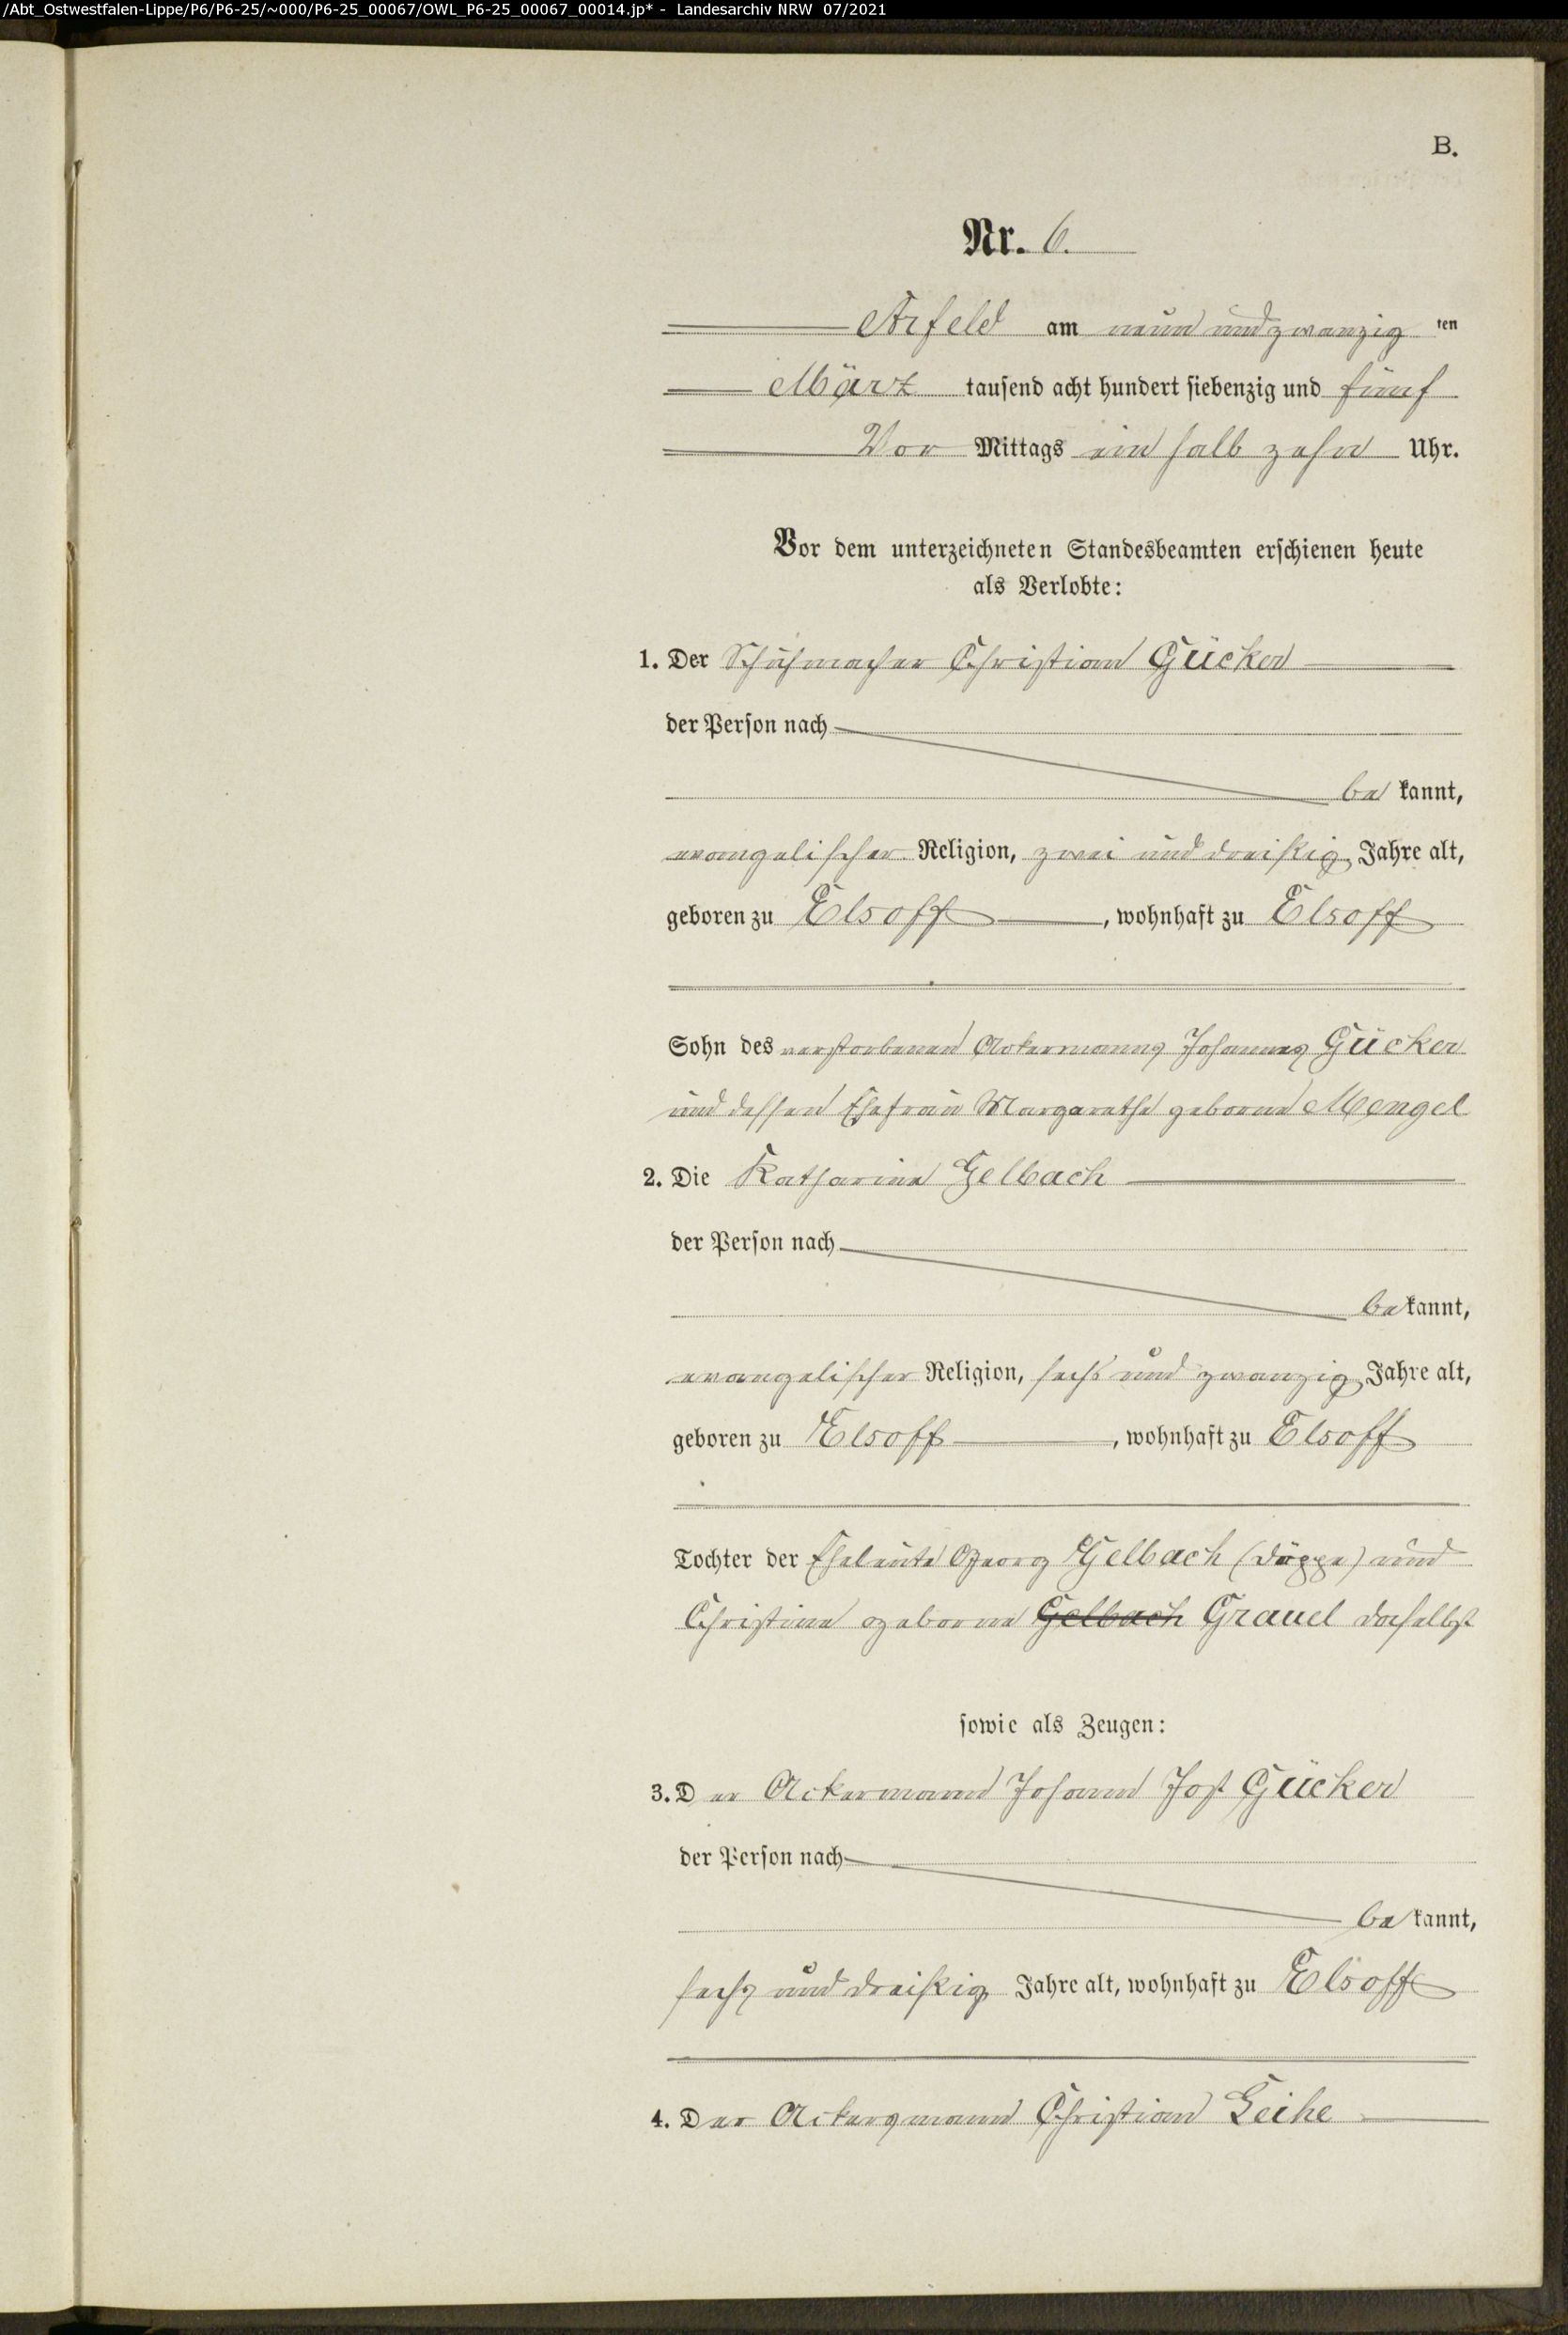 /Abt_Ostwestfalen-Lippe/P6/P6-25/~000/P6-25_00067/OWL_P6-25_00067_00014.jp* - Landesarchiv NRW 07/2021
B.
Nr. 6.
Arfeld am neun und zwanzig ten
März tausend acht hundert siebenzig und fünf
Vor Mittags ein halb zehn Uhr.
Vor dem unterzeichneten Standesbeamten erschienen heute
als Verlobte:
1. Der Schuhmacher Christian Gücker
der Person nach
be kannt,
evangelischer Religion, zwei und dreißig Jahre alt,
geboren zu Elsoff, wohnhaft zu Elsoff
Sohn des verstorbenen Ackermanns Johannes Gücker
und dessen Ehefrau Margarethe geborne Mengel
2. Die Katharine Gelbach
der Person nach
be kannt,
evangelischer Religion, sechs und zwanzig Jahre alt,
geboren zu Elsoff, wohnhaft zu Elsoff
Tochter der Eheleute Georg Gelbach (Döppe) und
Christine geborne Gelbach Grauel daselbst
sowie als Zeugen:
3. D er Ackermann Johann Jost Gücker
der Person nach
be kannt,
sechs und dreißig Jahre alt, wohnhaft zu Elsoff
4. D er Ackersmann Christian Leihe